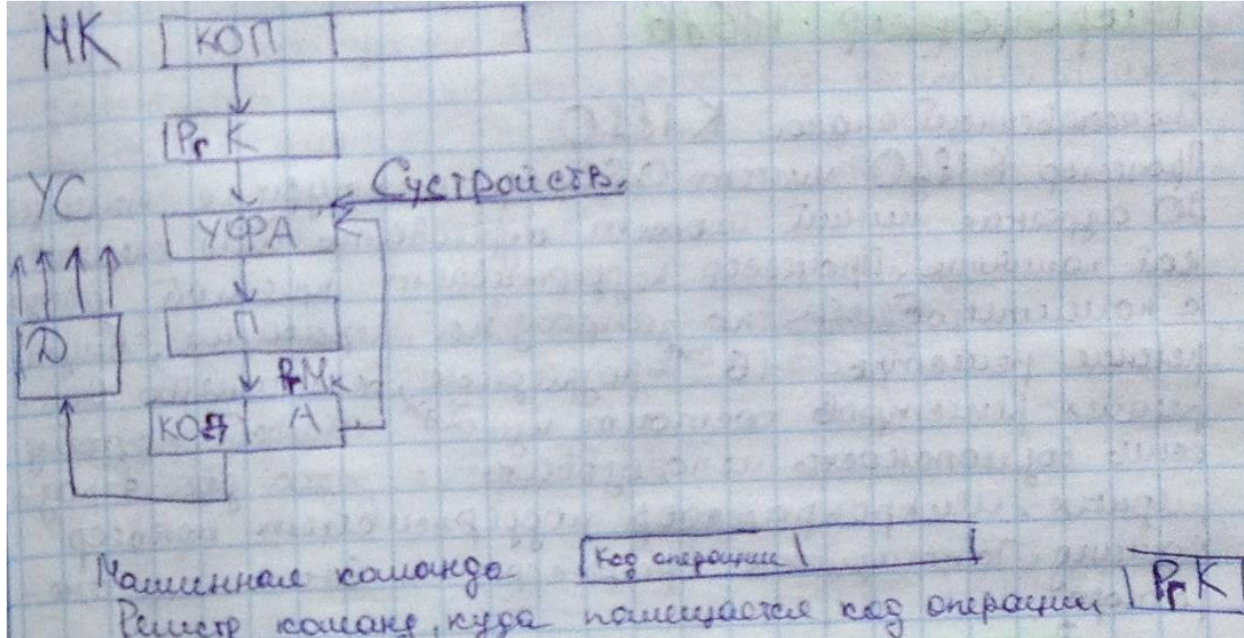 МК КОП
Рг К
УС
С устройств.
УФА
П
Д
РгМк
КОД А
Машинная команда Код операции
Регистр команд, куда помещается код операции Рг К